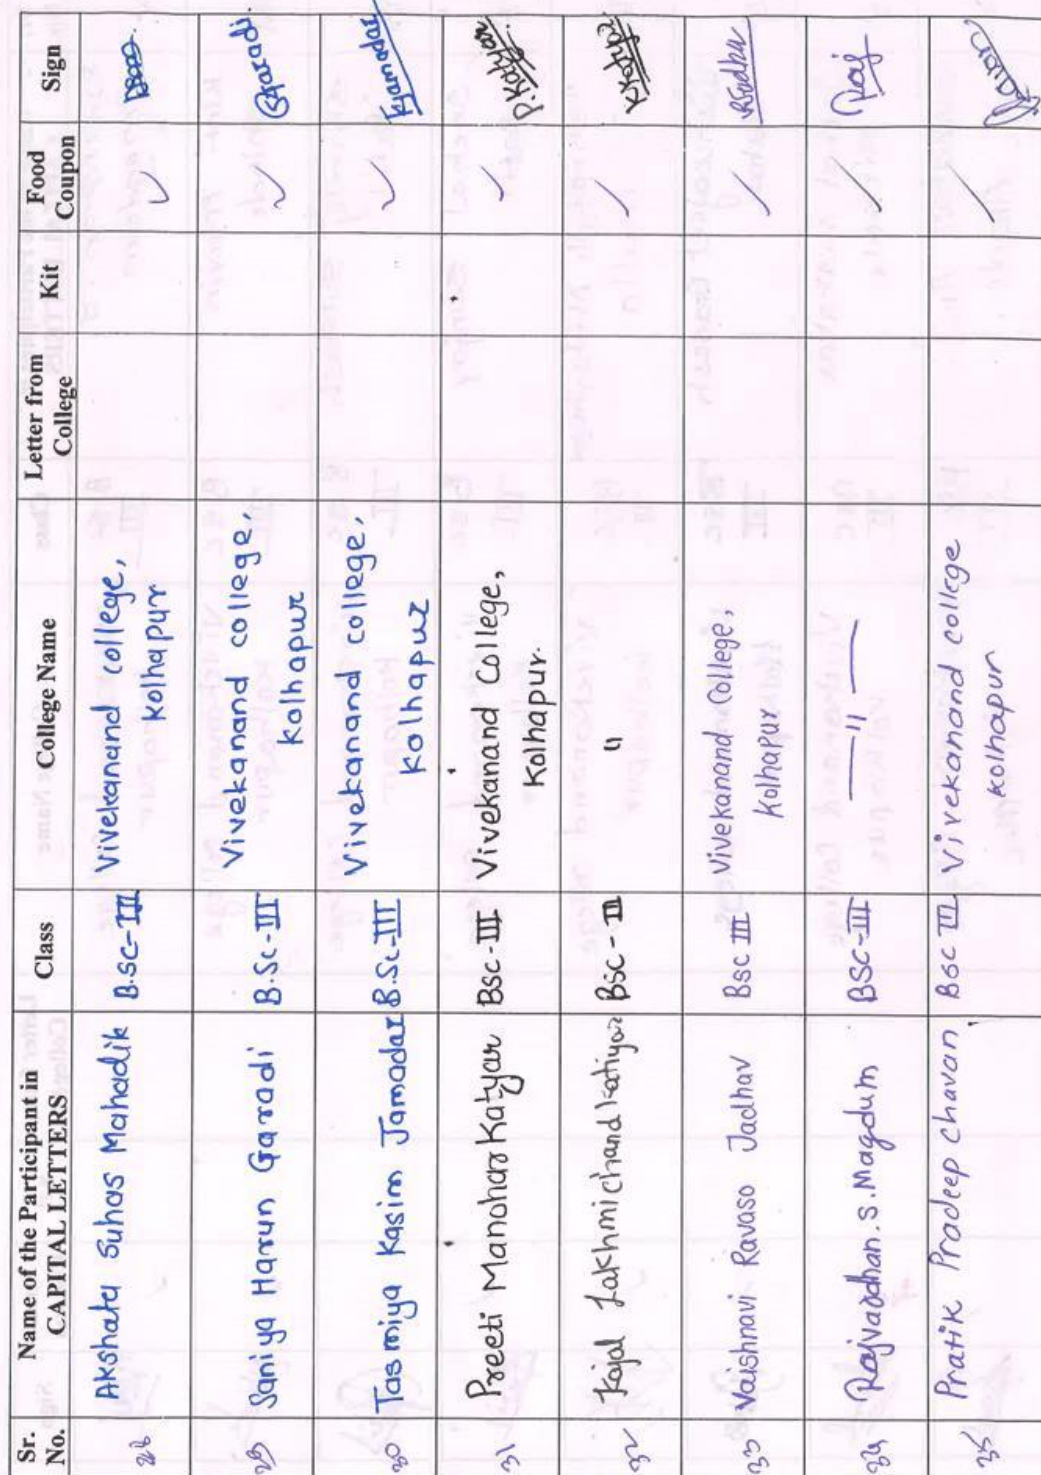 Sr. No. Name of the Participant in CAPITAL LETTERS Class College Name Letter from College Kit Food Coupon Sign
28 Akshata Suhas Mahadik B.sc-III Vivekanand college,
Kolhapur
29 Saniya Harun Garadi B.Sc-III Vivekanand college, Sgaradi
Kolhapur
30 Tasmiya Kasim Jamadar B.Sc-III Vivekanand college, Tjamadar
Kolhapur
31 Preeti Manohar Katyar Bsc-III Vivekanand College, P.Katyar
Kolhapur.
32 Kajal Lakhmichand katiyar Bsc-III "
33 Vaishnavi Ravaso Jadhav Bsc III Vivekanand College,
Kolhapur
34 Rajvardhan.S.Magdum BSC-III —"— Raj
35 Pratik Pradeep chavan Bsc III Vivekanand college
Kolhapur